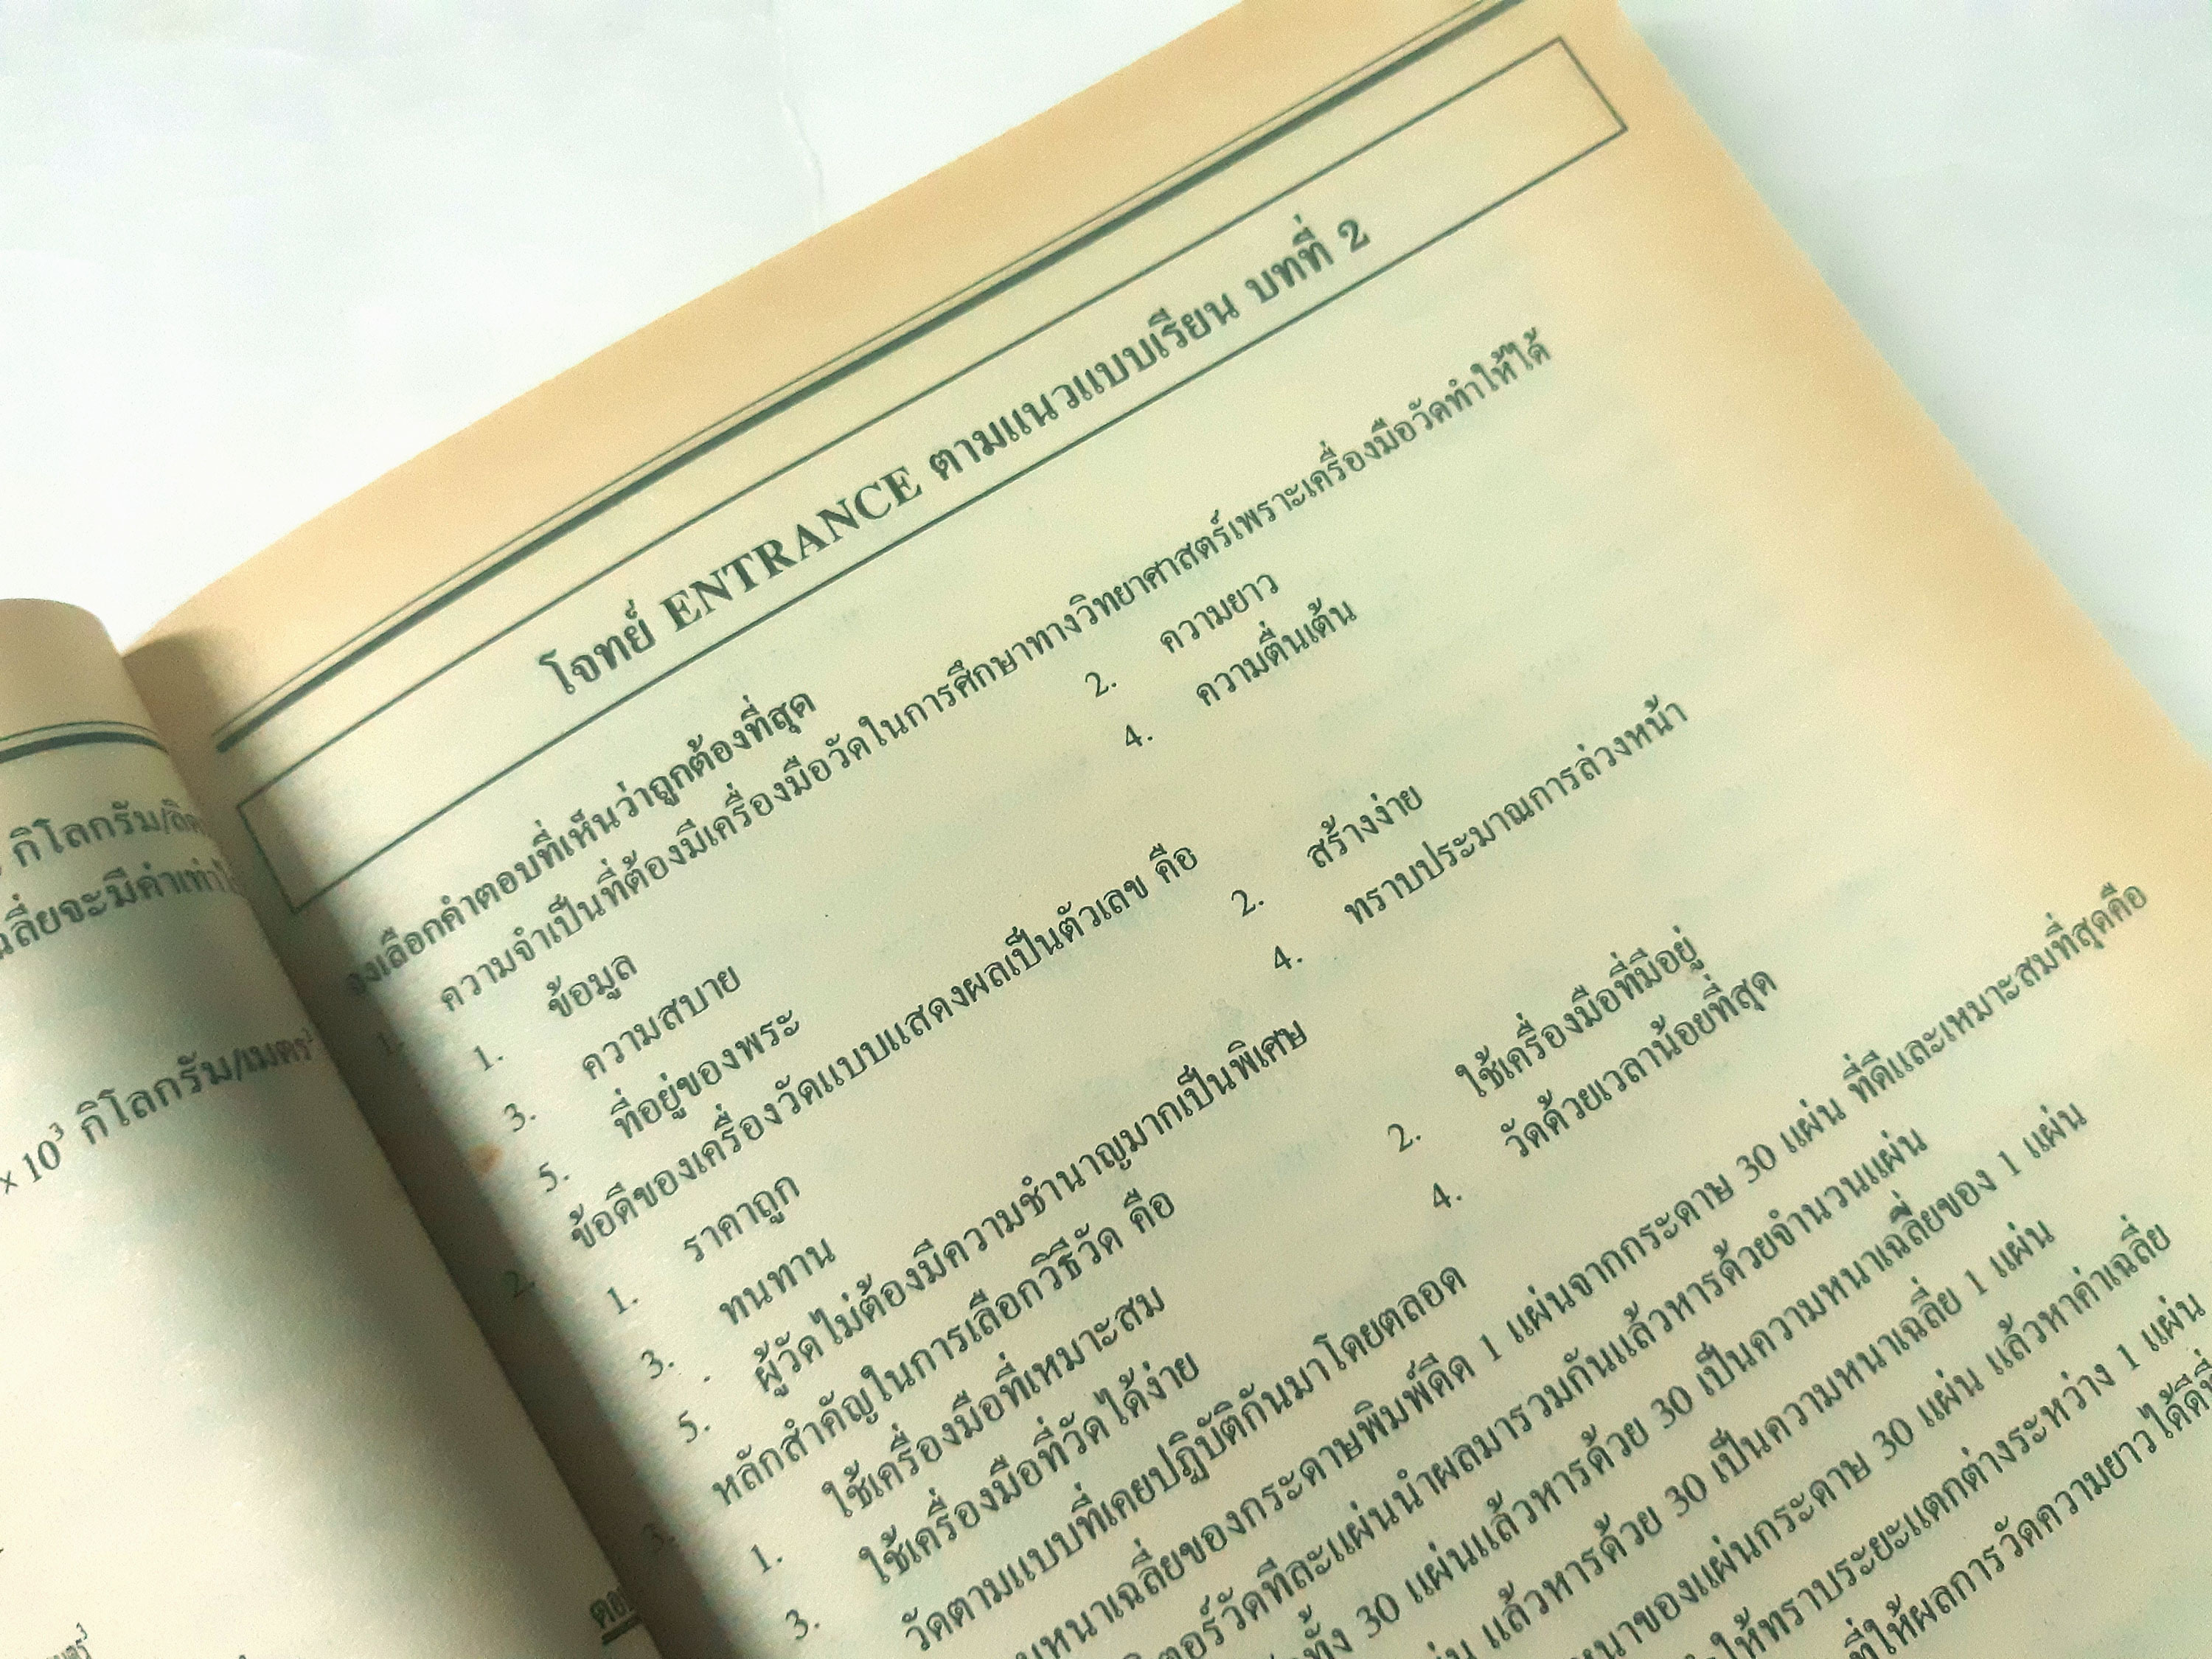 กิโลกรัม/
ฉลี่ยจะมีค่าเท่า
× 10³ กิโลกรัม/เมตร³
โจทย์ ENTRANCE ตามแนวแบบเรียน บทที่ 2
จงเลือกคำตอบที่เห็นว่าถูกต้องที่สุด
1. ความจำเป็นที่ต้องมีเครื่องมือวัดในการศึกษาทางวิทยาศาสตร์เพราะเครื่องมือวัดทำให้ได้
1. ข้อมูล 2. ความยาว
3. ความสบาย 4. ความตื่นเต้น
5. ที่อยู่ของพระ
2. ข้อดีของเครื่องวัดแบบแสดงผลเป็นตัวเลข คือ
1. ราคาถูก 2. สร้างง่าย
3. ทนทาน 4. ทราบประมาณการล่วงหน้า
5. ผู้วัดไม่ต้องมีความชำนาญมากเป็นพิเศษ
3. หลักสำคัญในการเลือกวิธีวัด คือ
1. ใช้เครื่องมือที่เหมาะสม 2. ใช้เครื่องมือที่มีอยู่
3. ใช้เครื่องมือที่วัดได้ง่าย 4. วัดด้วยเวลาน้อยที่สุด
วัดตามแบบที่เคยปฏิบัติกันมาโดยตลอด
หนาเฉลี่ยของกระดาษพิมพ์ดีด 1 แผ่นจากกระดาษ 30 แผ่น ที่ดีและเหมาะสมที่สุดคือ
วัดทีละแผ่นนำผลมารวมกันแล้วหารด้วยจำนวนแผ่น
ทั้ง 30 แผ่นแล้วหารด้วย 30 เป็นความหนาเฉลี่ยของ 1 แผ่น
แล้วหารด้วย 30 เป็นความหนาเฉลี่ย 1 แผ่น
หนาของแผ่นกระดาษ 30 แผ่น แล้วหาค่าเฉลี่ย
ให้ทราบระยะแตกต่างระหว่าง 1 แผ่น
ที่ให้ผลการวัดความยาวได้ดี